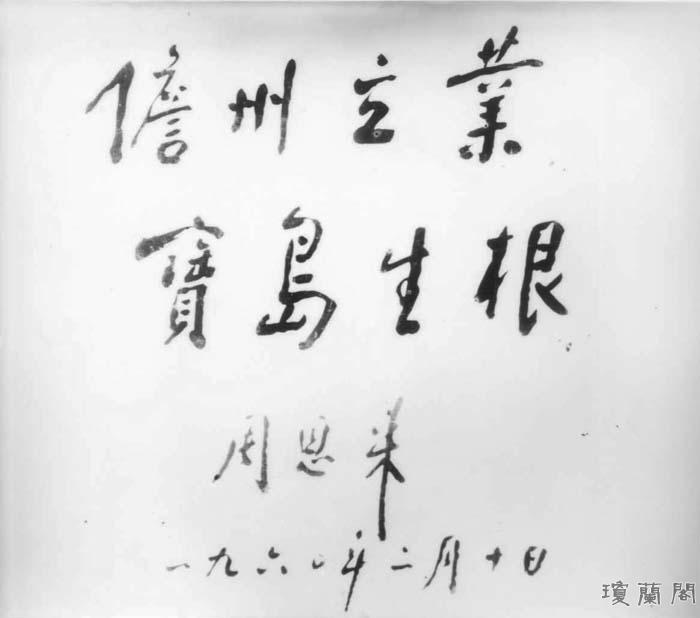 儋州立業
寶島生根
周恩来
一九六〇年二月十日
瓊蘭閣